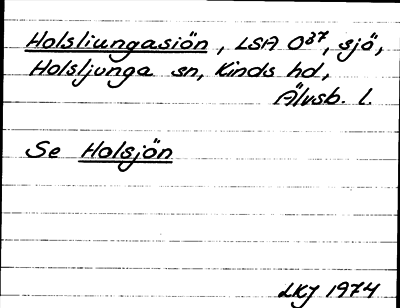 Holsliungasiön, LSA O37, sjö,
Holsljunga sn, Kinds hd,
Älvsb. l.
Se Holsjön
LKJ 1974